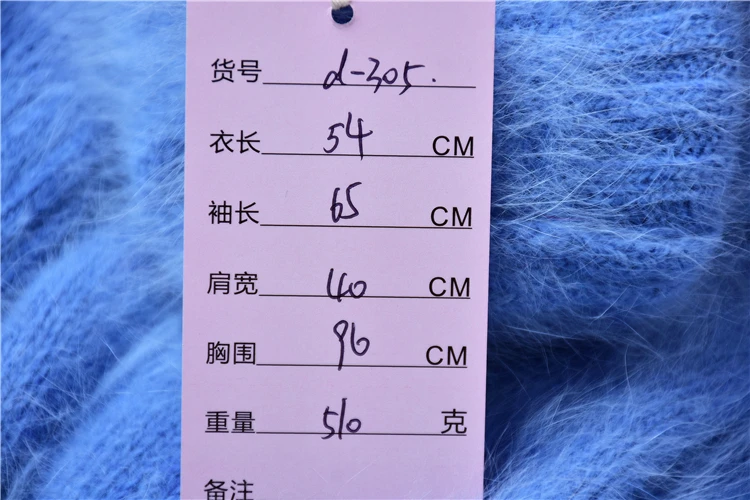 货号 d-305.
衣长 54 CM
袖长 65 CM
肩宽 40 CM
胸围 96 CM
重量 510 克
备注